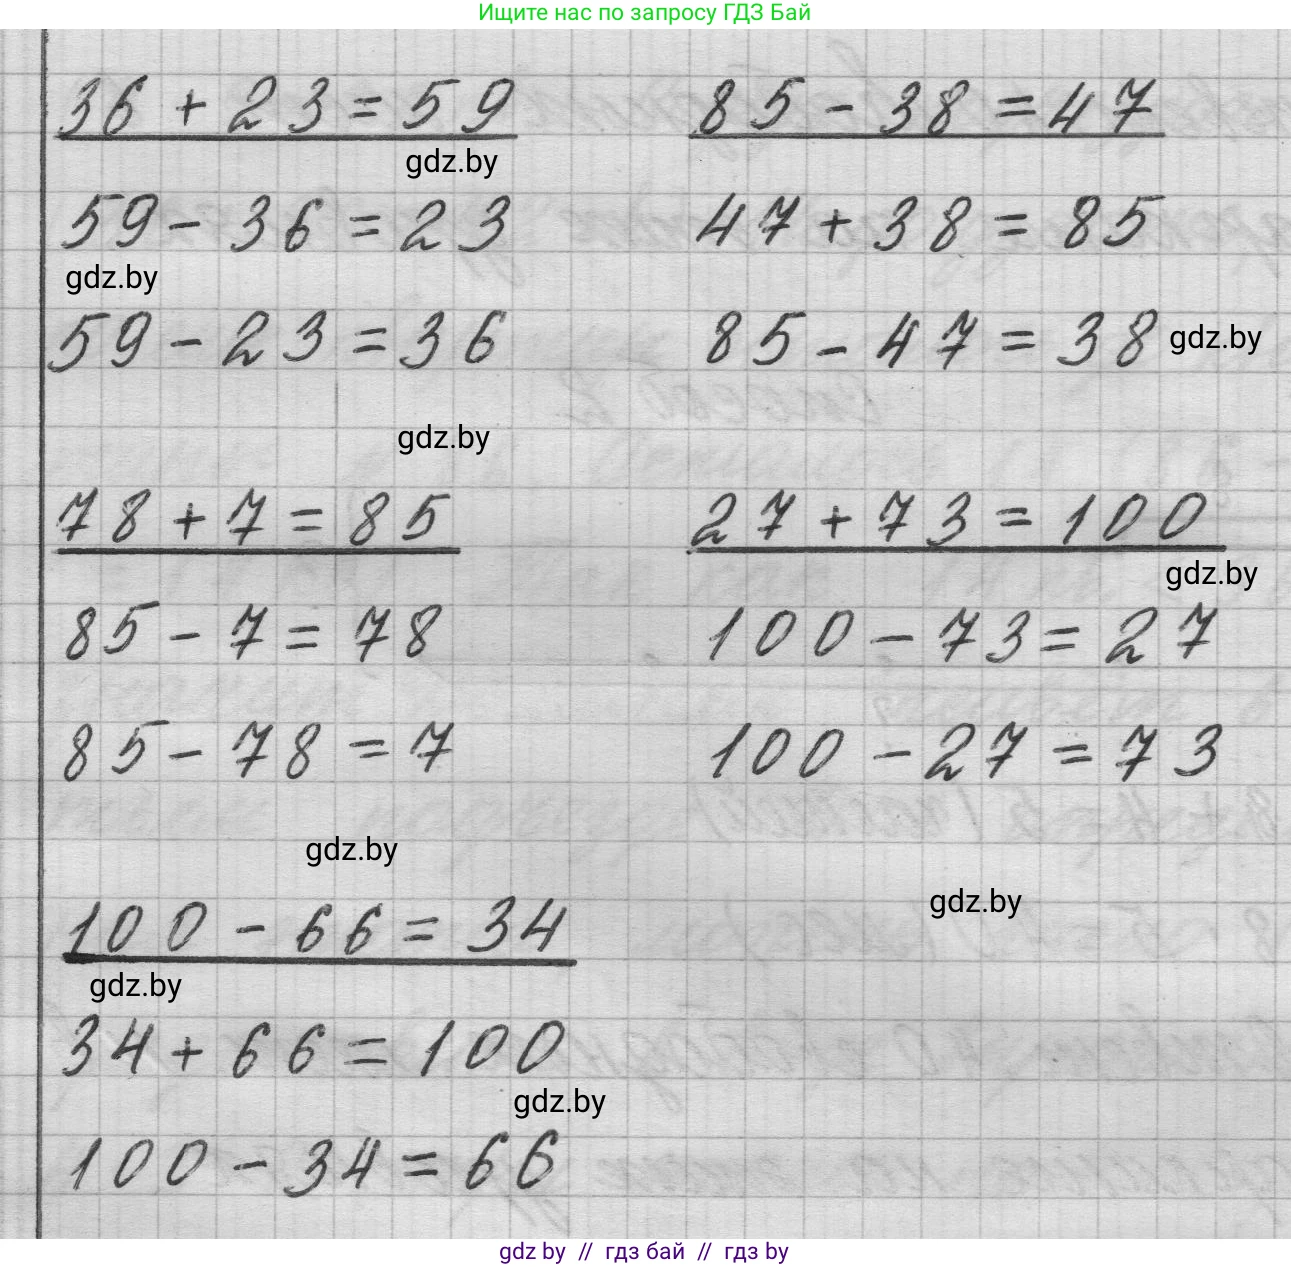 Ищите нас по запросу ГДЗ Бай
36 + 23 = 59
85 - 38 = 47
gdz.by
59 - 36 = 23
47 + 38 = 85
gdz.by
59 - 23 = 36
85 - 47 = 38
gdz.by
gdz.by
78 + 7 = 85
27 + 73 = 100
gdz.by
85 - 7 = 78
100 - 73 = 27
85 - 78 = 7
100 - 27 = 73
gdz.by
gdz.by
100 - 66 = 34
gdz.by
34 + 66 = 100
gdz.by
100 - 34 = 66
gdz by // гдз бай // гдз by